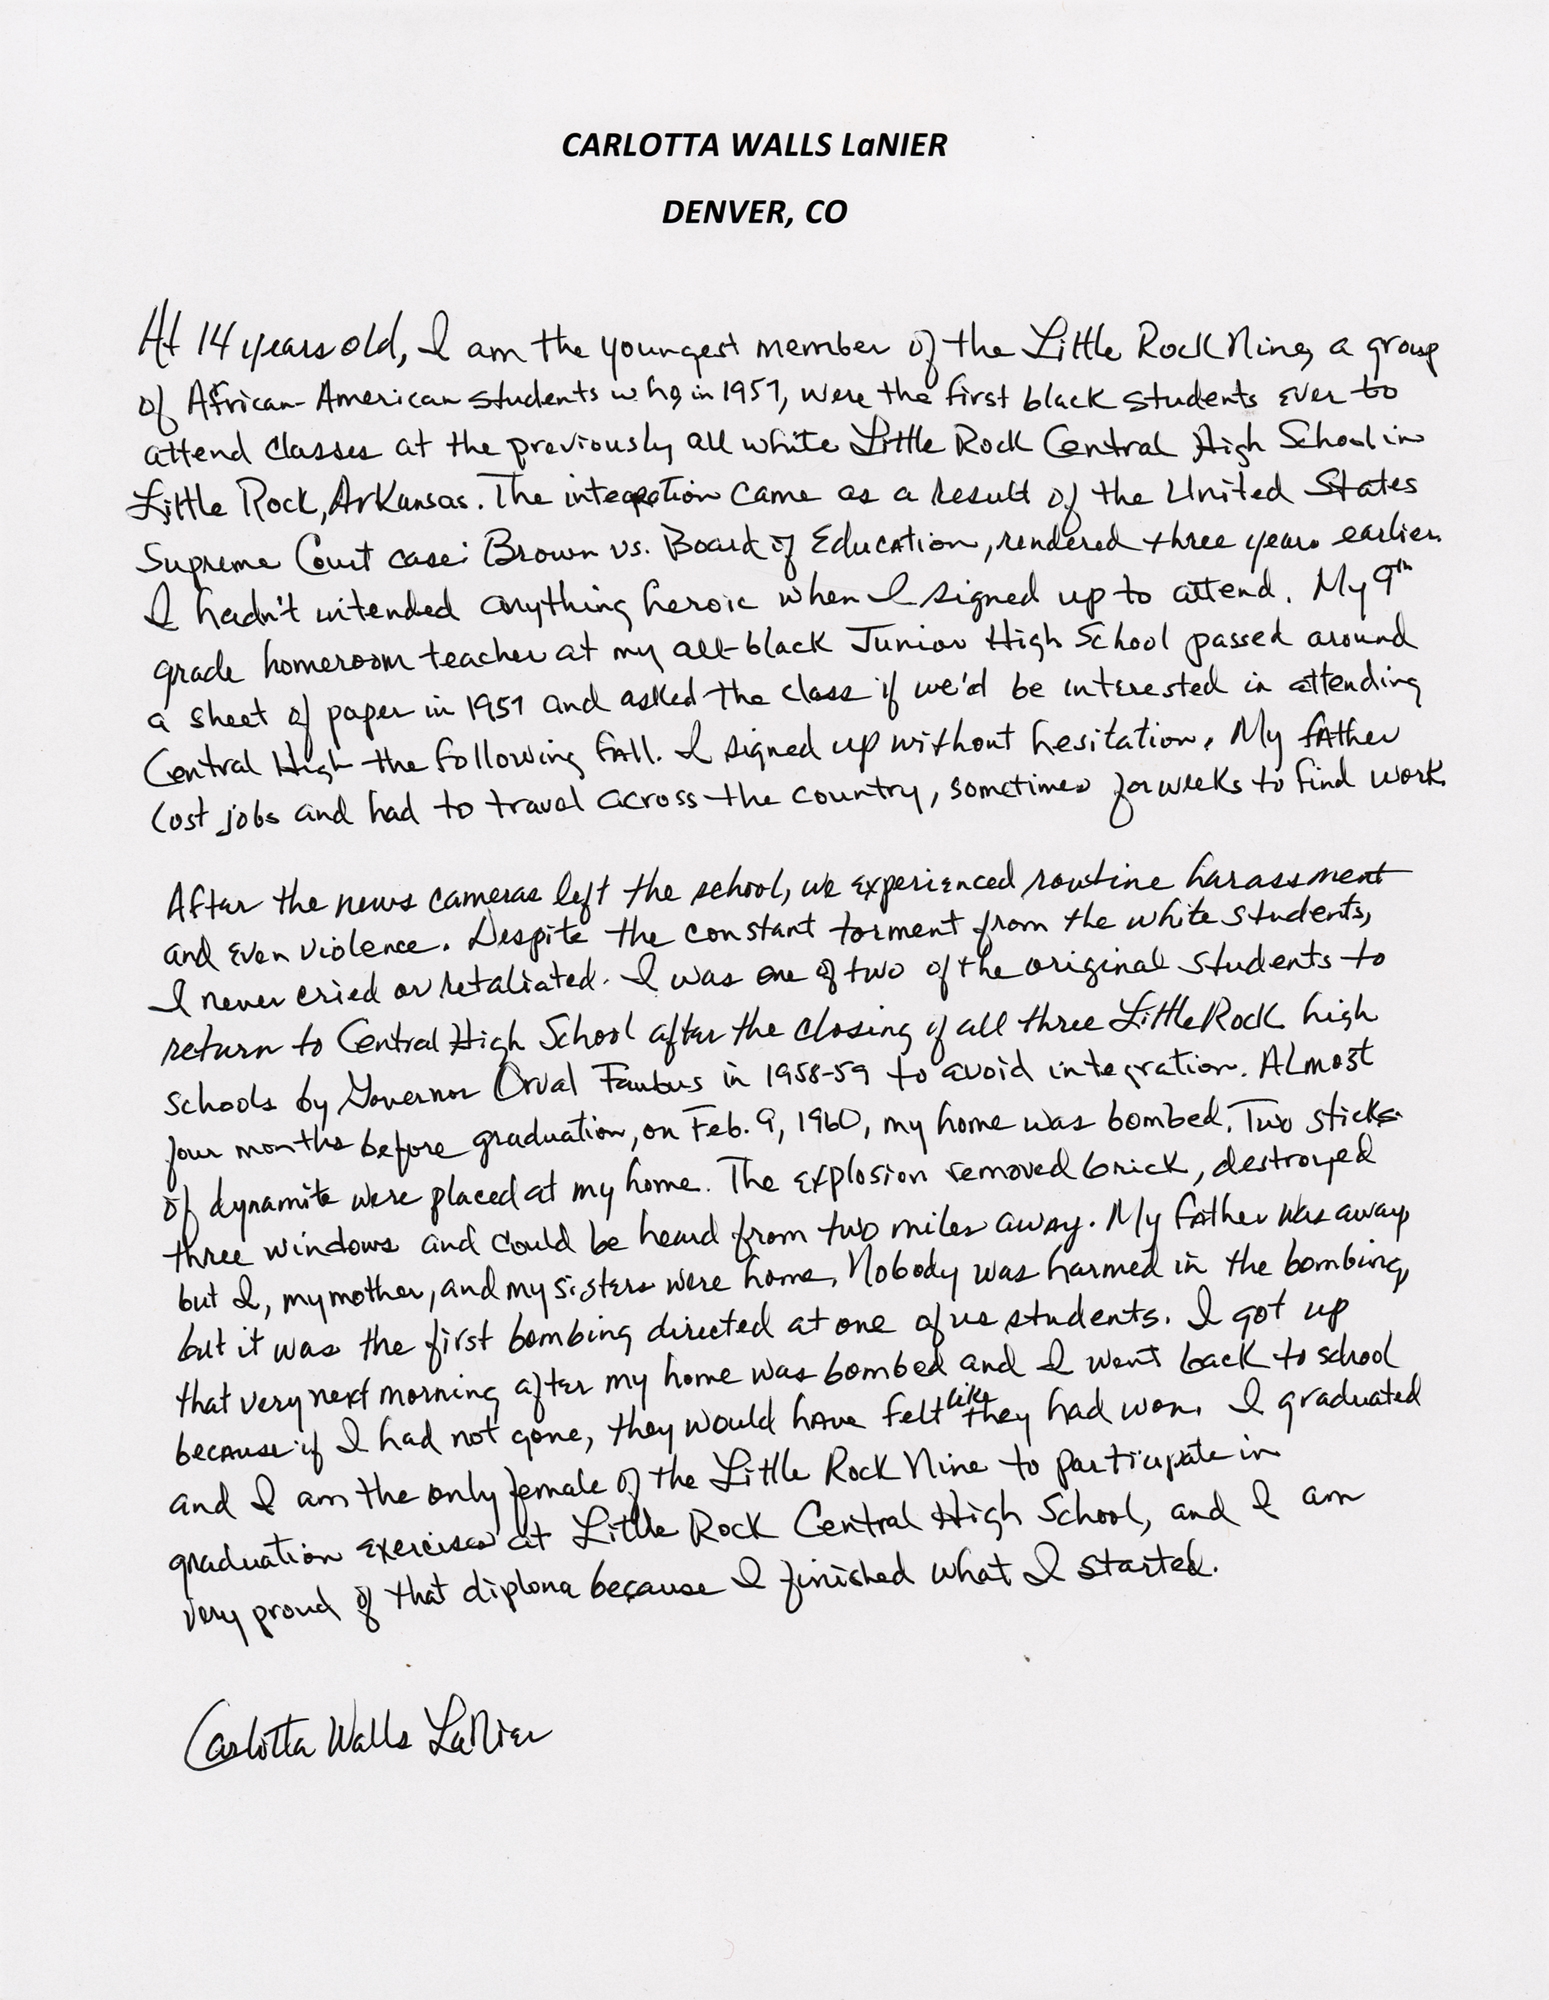 CARLOTTA WALLS LaNIER
DENVER, CO
At 14 years old, I am the youngest member of the Little Rock Nine, a group
of African-American students who, in 1957, were the first black students ever to
attend classes at the previously all white Little Rock Central High School in
Little Rock, Arkansas. The integration came as a result of the United States
Supreme Court case: Brown vs. Board of Education, rendered three years earlier.
I hadn't intended anything heroic when I signed up to attend. My 9th
grade homeroom teacher at my all-black Junior High School passed around
a sheet of paper in 1957 and asked the class if we'd be interested in attending
Central High the following fall. I signed up without hesitation. My father
lost jobs and had to travel across the country, sometimes for weeks to find work.
After the news cameras left the school, we experienced routine harassment
and even violence. Despite the constant torment from the white students,
I never cried or retaliated. I was one of two of the original students to
return to Central High School after the closing of all three Little Rock high
schools by Governor Orval Faubus in 1958-59 to avoid integration. Almost
four months before graduation, on Feb. 9, 1960, my home was bombed. Two sticks
of dynamite were placed at my home. The explosion removed brick, destroyed
three windows and could be heard from two miles away. My father was away,
but I, my mother, and my sisters were home. Nobody was harmed in the bombing,
but it was the first bombing directed at one of us students. I got up
that very next morning after my home was bombed and I went back to school
because if I had not gone, they would have felt like they had won. I graduated
and I am the only female of the Little Rock Nine to participate in
graduation exercises at Little Rock Central High School, and I am
very proud of that diploma because I finished what I started.
Carlotta Walls LaNier